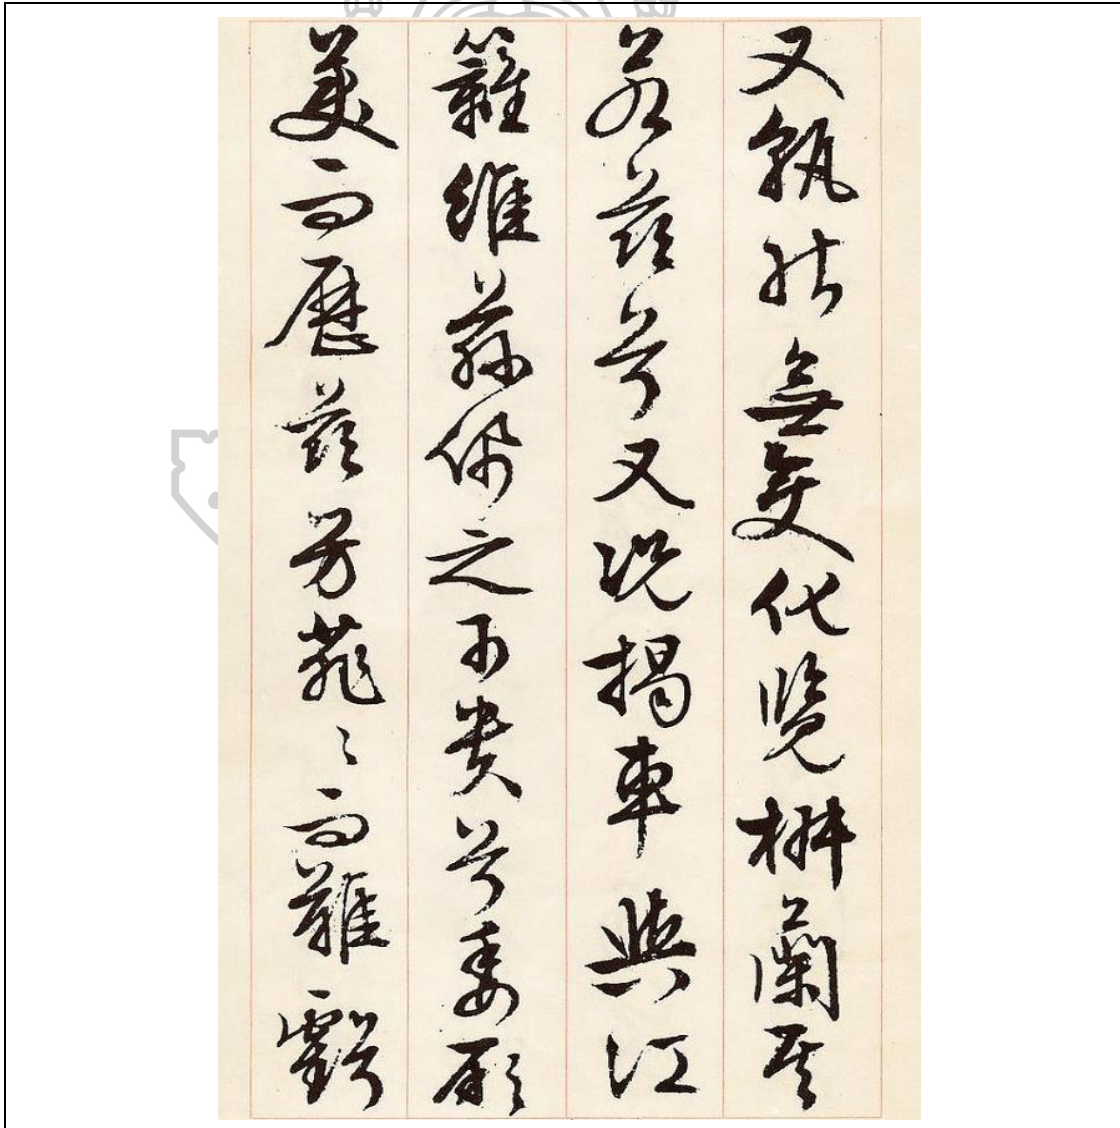 又孰能無變化覽椒蘭其
若茲兮又況揭車與江
蘺維茲佩之可貴兮委厥
美而歷茲芳菲〻而難虧